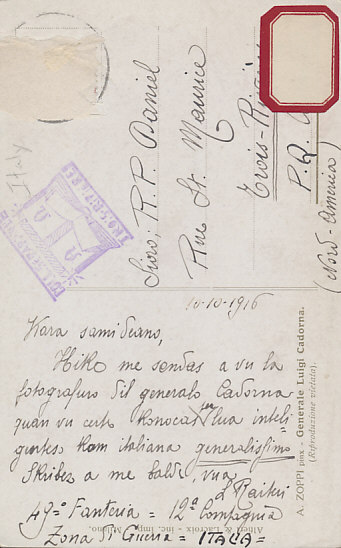 Italy
TROIS-RIVIERES
Sioro; R. P. Daniel
Rue St. Maurice
Trois-
P. Q.
(Nord-America)
10-10-1916
Kara samideano,
Hike me sendas a vu la
fotografuro dil generalo Cadorna
quan vu certe konocas per lua inteli-
genteso kom italiana generalissimo
Skribez a me balde, vua
49º Fanteria = 12ª Compagnia
Zona di Guerra = ITALIA =
A. ZOPPI pinx. - Generale Luigi Cadorna.
(Riproduzione vietata).
Alfieri & Lacroix - Inc. Imp. Milano.